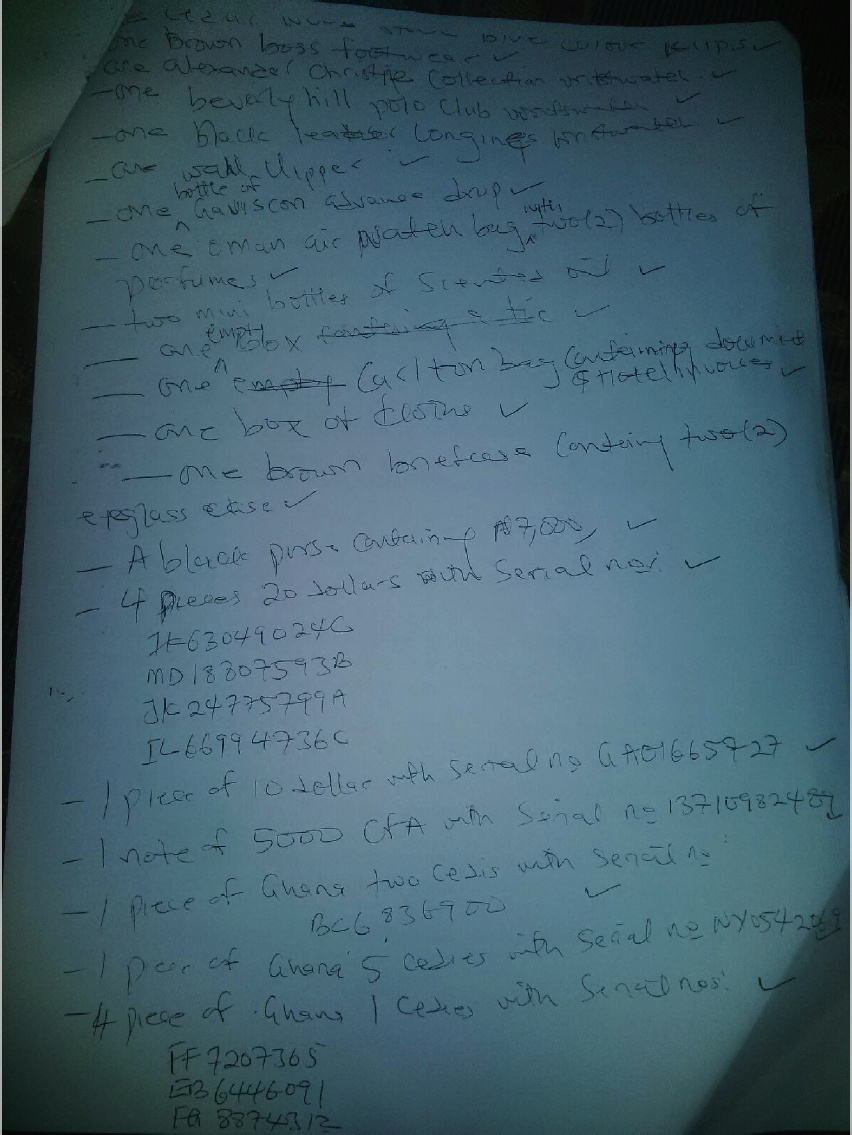 one Brown boss footwear ✓
one alexander Christie Collection wristwatch ✓
- one beverly hill polo Club wristwatch ✓
- one black leather Longines wristwatch ✓
- one wahl Clipper ✓
- one bottle of Gaviscon advance drop ✓
- one oman air bag with two(2) bottles of
perfumes ✓
- two mini bottles of Scented oil ✓
- one empty box ✓
- one Carlton bag Containing document
& Hotel invoices ✓
- one box of ✓
- one brown briefcase Containing two(2)
eyeglass case ✓
- A black purse Containing ₦7,000, ✓
- 4 pieces 20 dollars with Serial nos: ✓
63049024G
MD18807593B
JK24775799A
IL66994736C
- 1 piece of 10 dollar with Serial no GA01665727 ✓
- 1 note of 5000 CFA with Serial no
- 1 piece of Ghana two Cedis with Serial no
BC6836900 ✓
- 1 piece of Ghana 5 Cedies with Serial no
- 4 piece of Ghana 1 Cedies with Serial nos: ✓
FF7207365
EB6446091
FG8874312